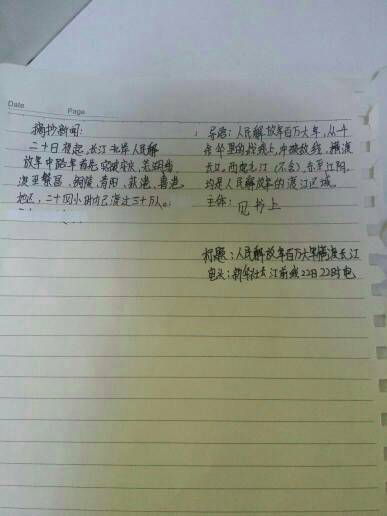 Date
Page
摘抄新闻:
二十日夜起,长江北岸人民解
放军中路军首先突破安庆,芜湖线
渡至繁昌、铜陵、青阳、荻港、鲁港
地区,二十四小时内已渡过三十万人。
导语:人民解放军百万大军,从一千
余华里的战线上,冲破敌线,横渡
长江。西起九江(不含)东至江阴,
均是人民解放军的渡江区域。
主体:见书上
标题:人民解放军百万大军横渡长江
电头:新华社长江前线22日22时电